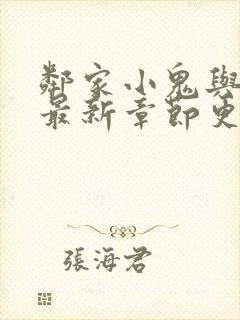 鄰家小鬼與
最新章節更
張海君